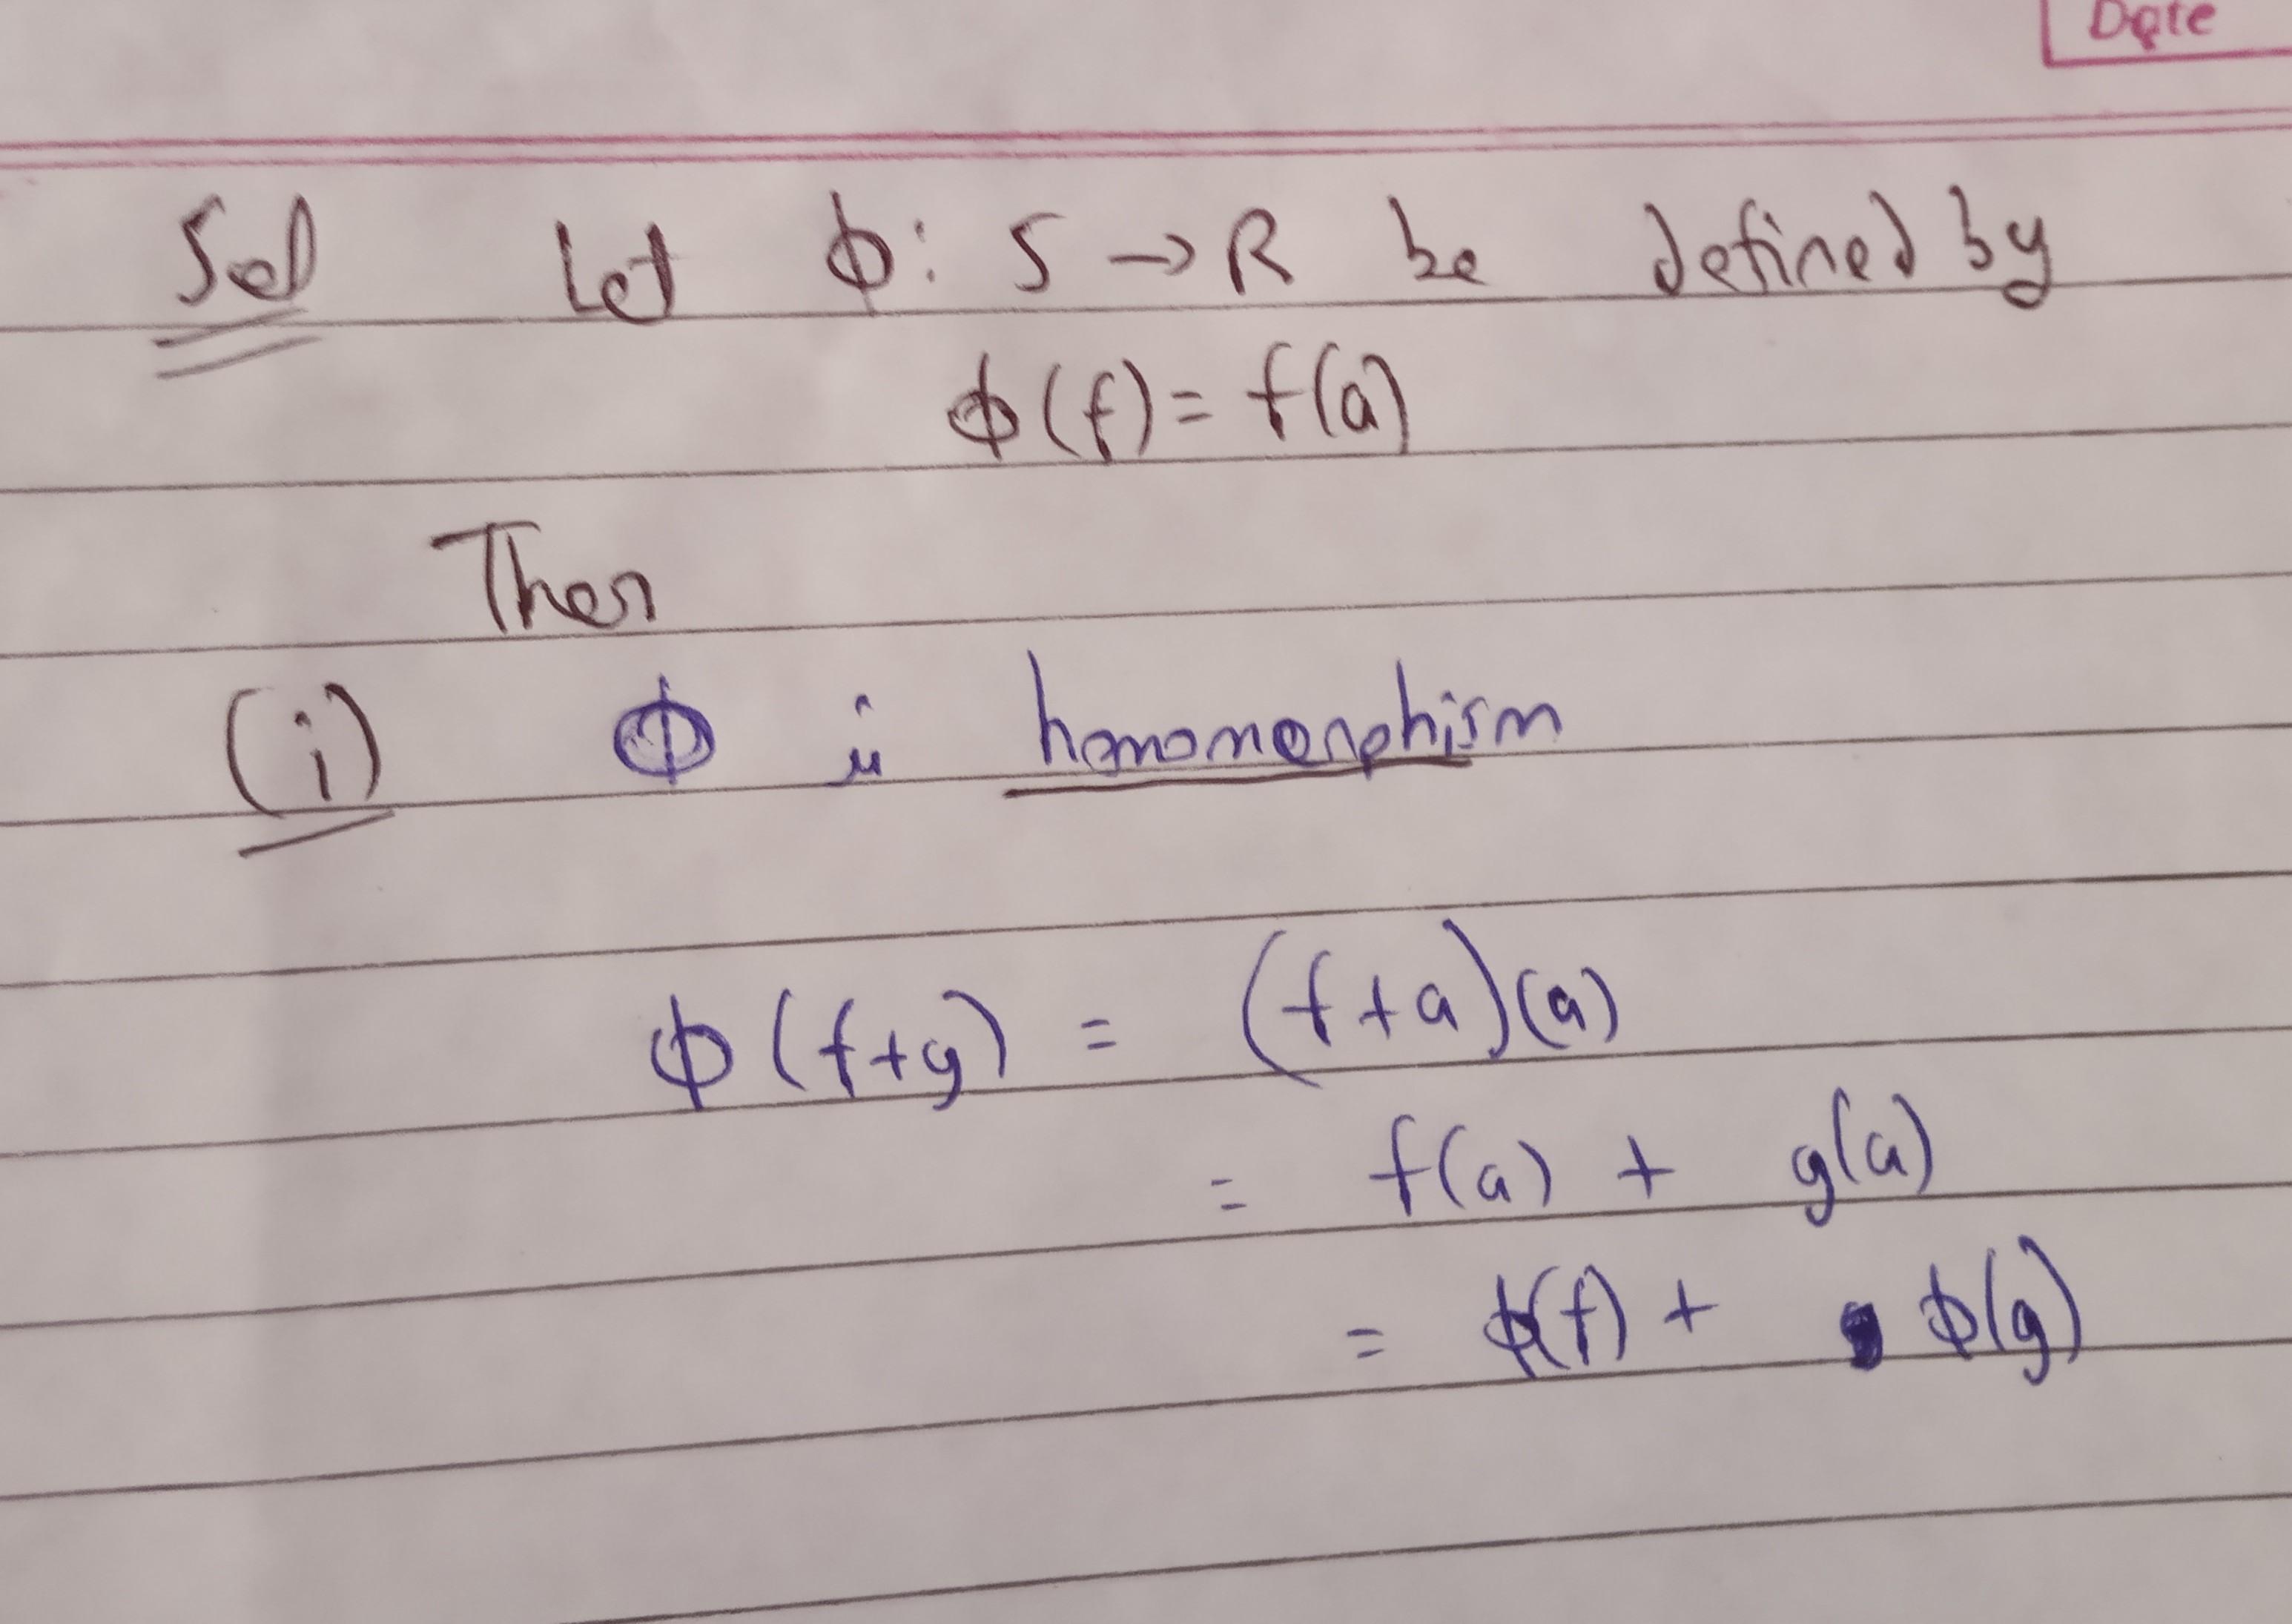 Date
Sol Let ϕ: S → R be defined by
ϕ(f) = f(a)
Then
(i) ϕ is homomorphism
ϕ(f+g) = (f+a)(a)
= f(a) + g(a)
= ϕ(f) + ϕ(g)